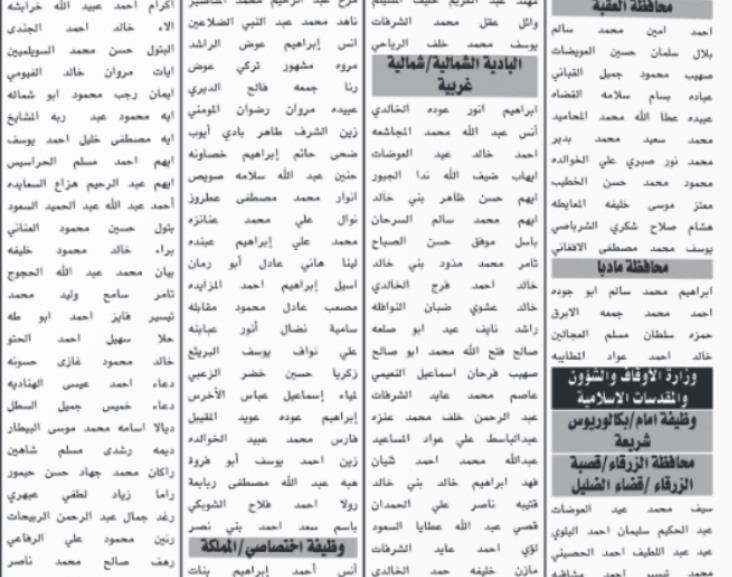 محافظة العقبة
احمد امين محمد سالم
بلال سلمان حسين العويضات
صهيب محمود جميل القباني
عباده بسام سلامه القضاه
عبيده عطا الله محمد المحاميد
محمد سعيد محمد بدير
محمد نور صبري علي الخوالده
محمود محمد حسن الخطيب
معتز موسى خليفه المعايطه
هشام صلاح شكري الشرباصي
يوسف محمد مصطفى الافغاني
محافظة مادبا
ابراهيم محمد سالم ابو جوده
احمد محمد جمعه الابرق
حمزه سلطان مسلم العجالين
خالد احمد عواد
وزارة الاوقاف والشؤون
والمقدسات الاسلامية
وظيفة امام/بكالوريوس
شريعة
محافظة الزرقاء/قصبة
الزرقاء/قضاء الضليل
سيف محمد عيد العوضات
عبد الحكيم سليمان احمد البلوي
عبد عبد اللطيف احمد الحصيني
محمد تيسير احمد
وائل عقل محمد الشرفات
يوسف محمد خلف الرياحي
البادية الشمالية/شمالية
غربية
ابراهيم انور عوده الخالدي
أنس عبد الله محمد المجاشعه
احمد خالد عيد العوضات
ايهاب ضيف الله ندا الجبور
ايهم حسن ظاهر بني خالد
ايهم محمد سالم السرحان
باسل موفق حسن الصباح
ثامر محمد مذود بني خالد
خالد احمد فرج الخالدي
خالد عشوي ضبان النوافله
راشد نايف عيد ابو صلعه
صالح فتح الله محمد ابو صالح
صهيب فرحان اسماعيل النعيمي
عاصم محمد عايد الشرفات
عبد الرحمن خلف محمد عنزه
عبدالباسط علي عواد المساعيد
عبدالله محمد احمد شيان
فهد ابراهيم خالد بني خالد
قتيبه ناصر علي الحمدان
قصي عبد الله عطايا السعود
لؤي احمد عايد الشرفات
مازن خليفه حمد الخالدي
ناهد محمد عبد النبي الضلاعين
انس إبراهيم عوض الراشد
مروه مشهور تركي عوض
رنا جمعه فالح الديري
عبيده مروان رضوان المومني
زين الشرف طاهر بادي أيوب
ضحى حاتم إبراهيم خصاونه
حنين عبد الله سلامه صويص
انوار محمد مصطفى عطروز
نوال علي محمد عنانزه
محمد علي إبراهيم عبنده
لينا هاني عادل أبو رمان
اسيل إبراهيم احمد المزايده
مصعب عادل محمود مقابله
سامية نضال أنور عبابنه
علي نواف يوسف البريثع
زكريا حسين خضر الزعبي
لمياء إسماعيل عباس الأخرس
إبراهيم عوده عويد المقيبل
فارس محمد عبيد الخوالده
زين احمد يوسف أبو فروة
هبه عبد الله مصطفى ربابعة
رولا احمد فلاح الشوبكي
باسم سعد احمد بني نصر
وظيفة اختصاصي/المملكة
أنس أحمد إبراهيم بنات
اكرام احمد عبيد الله خرابشه
الاء خالد احمد الجندى
البتول حسن محمد السويلميين
ايات مروان خالد الفيومي
ايمان رجب محمود ابو شماله
ايه محمود عبد ربه المشايخ
ايه مصطفى خليل احمد يوسف
ايهم احمد مسلم الحراسيس
ايهم عبد الرحيم هزاع السعايده
أحمد عبد الله عبد الحميد السعود
بتول حسين محمود العناني
براء خالد محمود خليفه
بيان محمد عبد الله الحجوج
ثامر سامح وليد محمد
تيسير فايز احمد ابو طه
حلا سهيل احمد الحتو
خالد محمود غازى حسونه
دعاء احمد عيسى الهناديه
دعاء خميس جميل السطل
ديالا اسامه محمد موسى البيطار
ديمه رشدى مسلم شاهين
راكان محمد جهاد حسن حيمور
راما زياد لطفي عبهري
رغد جمال عبد الرحمن الربيحات
رنين محمود علي الرفاعي
رهف صالح محمد ناصر